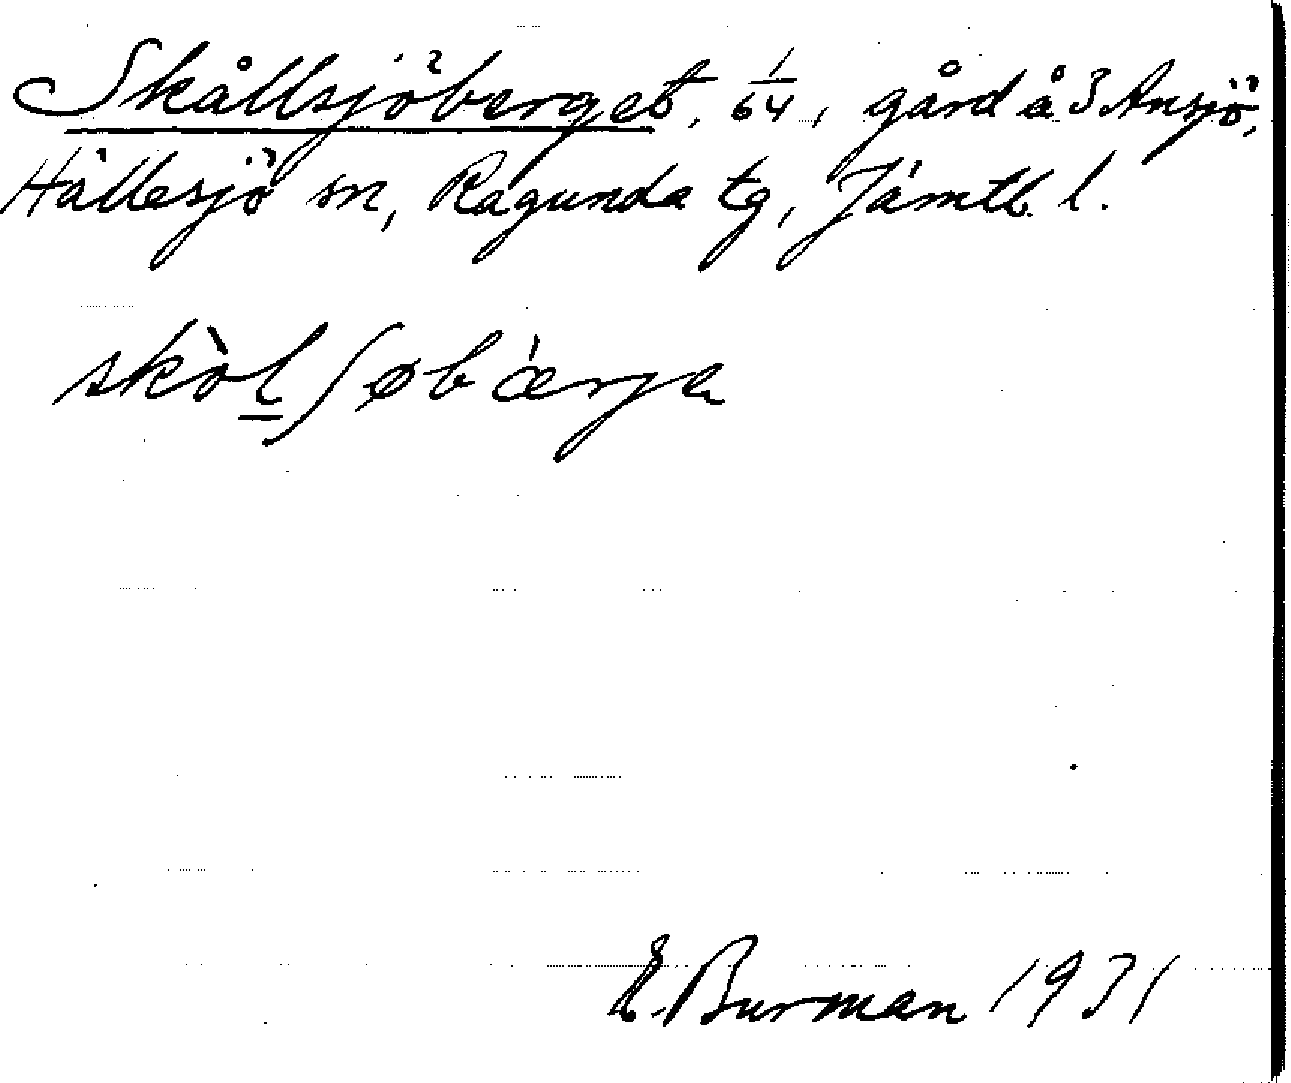 Skållsjöberget, 1/64, gård å 3 Ansjö,
Hällesjö sn, Ragunda tg, Jämtl. l.
skòlʃøbǽrja
E. Burman 1931